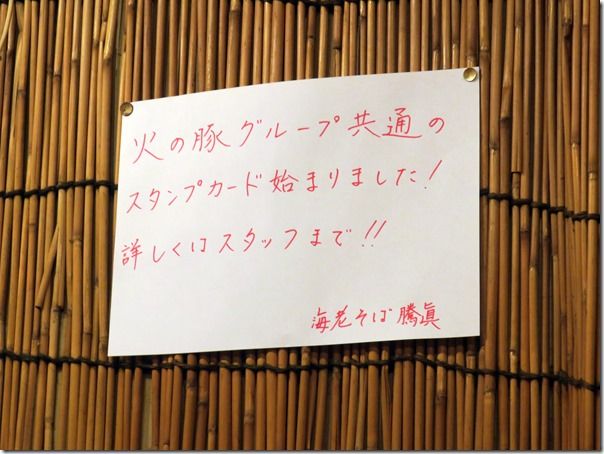 火の豚グループ共通の
スタンプカード始まりました!
詳しくはスタッフまで!!
海老そば 騰眞